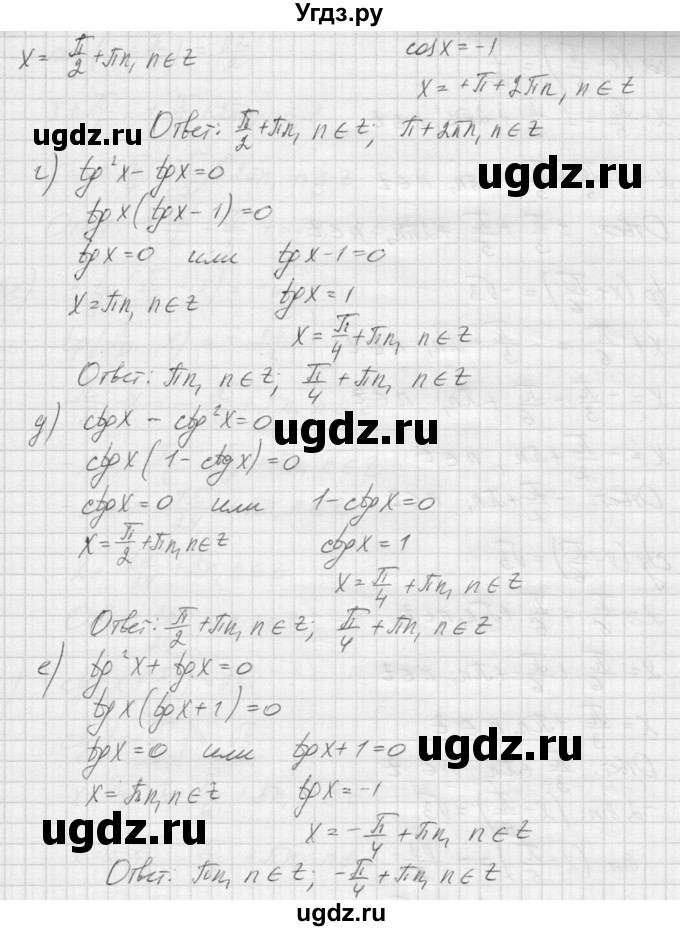 Угдз.ру
x = π/2 + πn, n ∈ Z cos x = -1
x = +π + 2πn, n ∈ Z
Ответ: π/2 + πn, n ∈ Z; π + 2πn, n ∈ Z
ugdz.ru
ugdz.ru
г) tg²x - tgx = 0
tgx(tgx - 1) = 0
tgx = 0 или tgx - 1 = 0
x = πn, n ∈ Z tgx = 1
ugdz.ru
x = π/4 + πn, n ∈ Z
Ответ: πn, n ∈ Z; π/4 + πn, n ∈ Z
д) ctgx - ctg²x = 0
ugdz.ru
ctgx(1 - ctgx) = 0
ctgx = 0 или 1 - ctgx = 0
x = π/2 + πn, n ∈ Z ctgx = 1
ugdz.ru
x = π/4 + πn, n ∈ Z
Ответ: π/2 + πn, n ∈ Z; π/4 + πn, n ∈ Z
е) tg²x + tgx = 0
tgx(tgx + 1) = 0
tgx = 0 или tgx + 1 = 0
ugdz.ru
x = πn, n ∈ Z tgx = -1
ugdz.ru
x = -π/4 + πn, n ∈ Z
Ответ: πn, n ∈ Z; -π/4 + πn, n ∈ Z
ugdz.ru